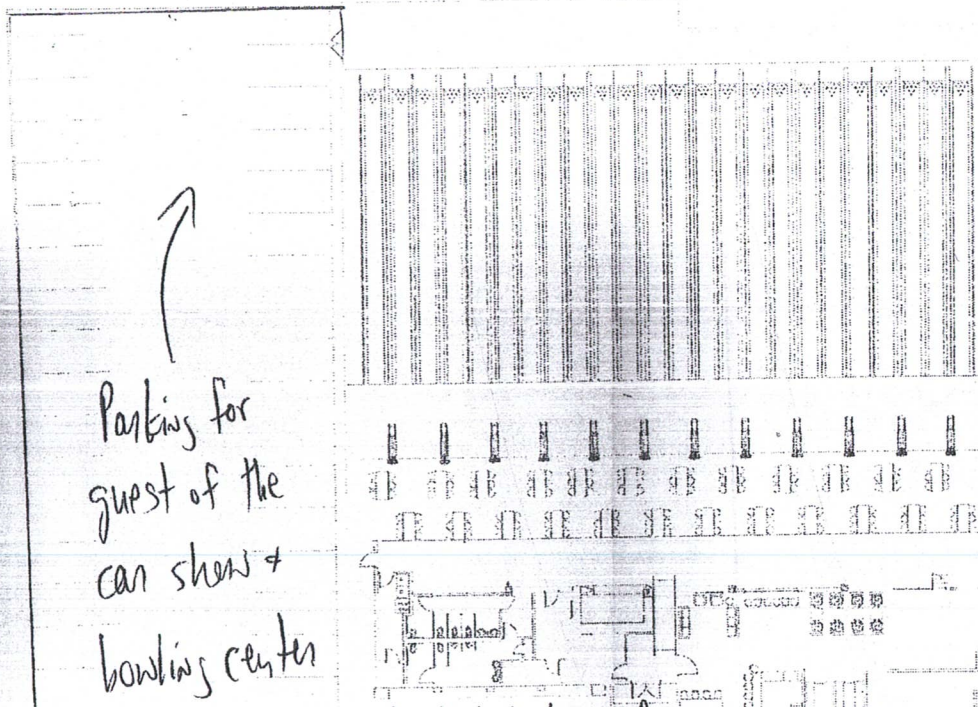 Parking for
guest of the
car show +
bowling center